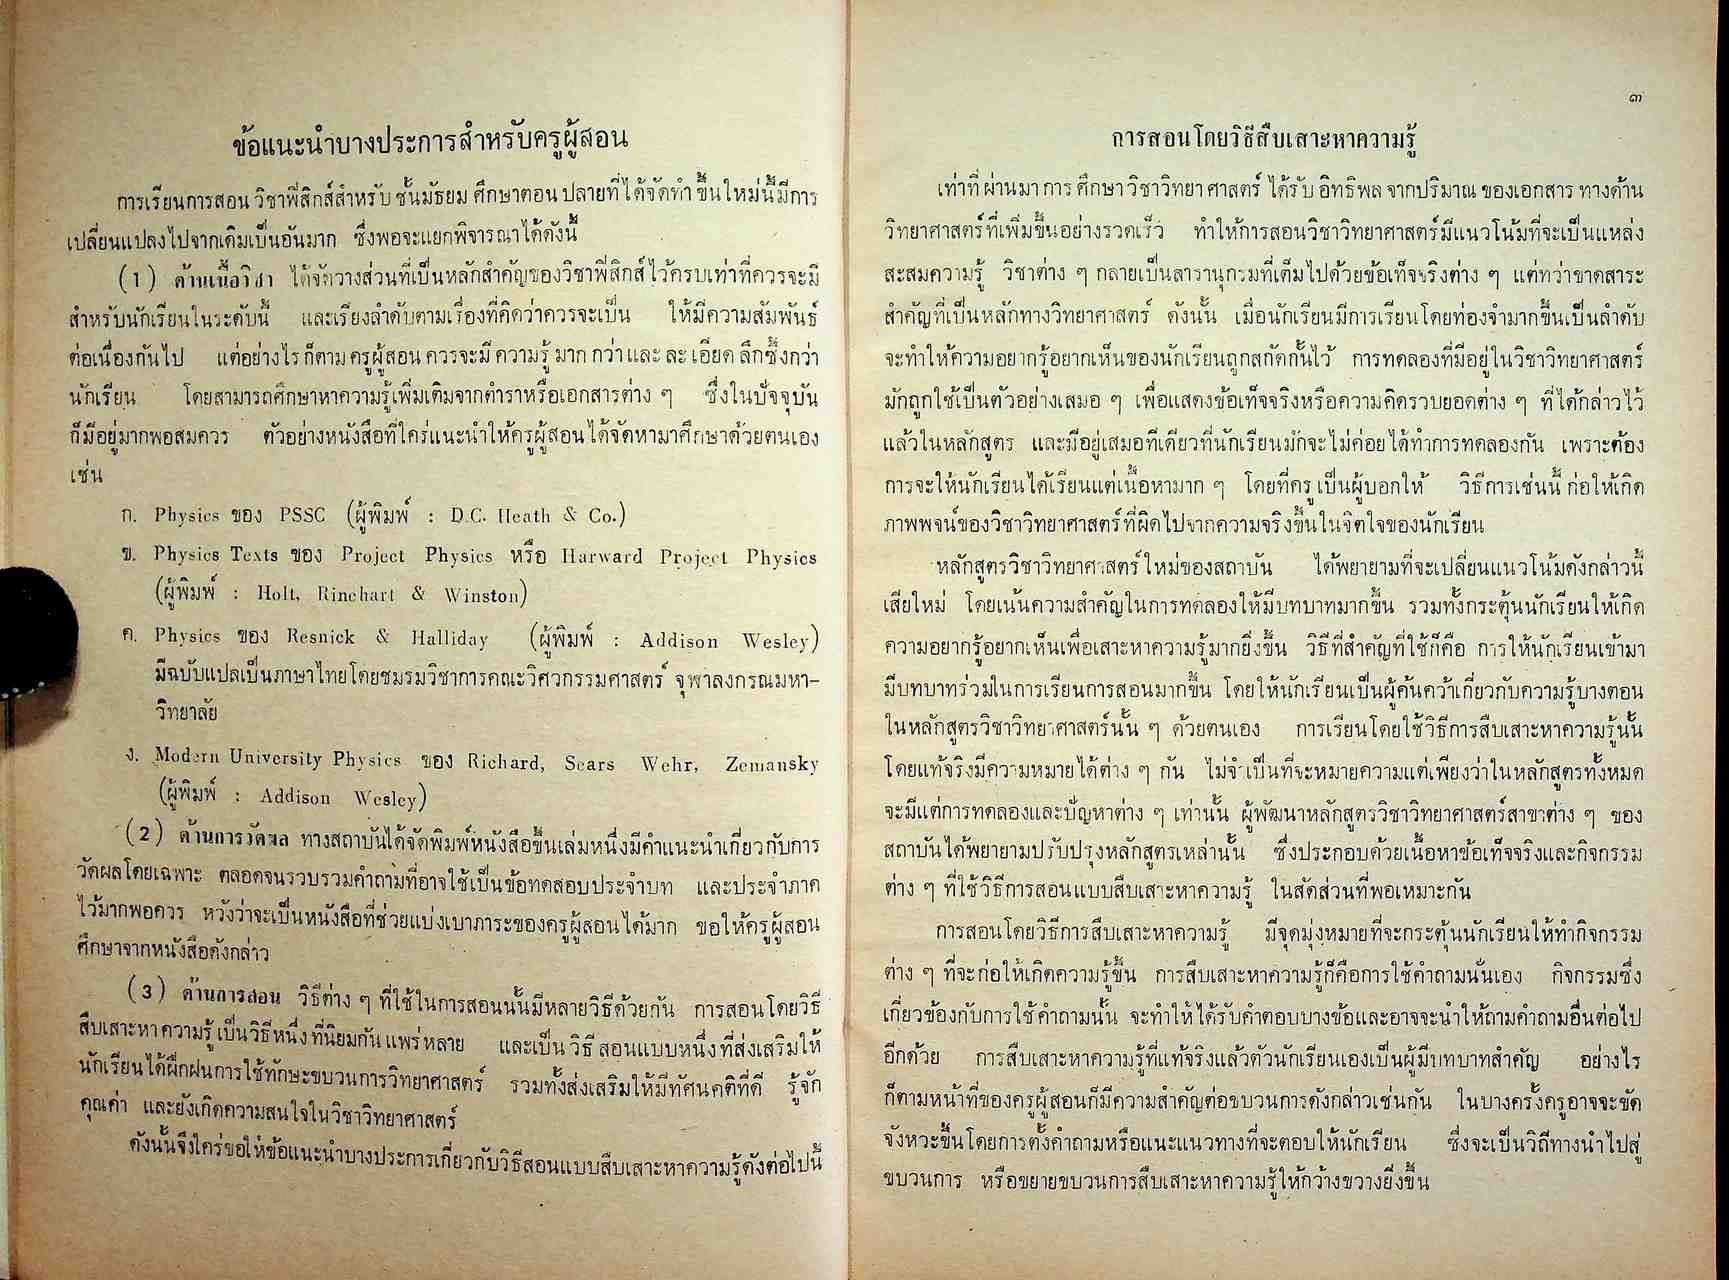 ข้อแนะนำบางประการสำหรับครูผู้สอน
การเรียนการสอน วิชาฟิสิกส์สำหรับ ชั้นมัธยม ศึกษาตอน ปลายที่ ได้จัดทำ ขึ้นใหม่นี้มีการ
เปลี่ยนแปลงไปจากเดิมเป็นอันมาก ซึ่งพอจะแยกพิจารณาได้ดังนี้
(1) ด้านเนื้อวิชา ได้จัดวางส่วนที่เป็นหลักสำคัญของวิชาฟิสิกส์ไว้ครบเท่าที่ควรจะมี
สำหรับนักเรียนในระดับนี้ และเรียงลำดับตามเรื่องที่คิดว่าควรจะเป็น ให้มีความสัมพันธ์
ต่อเนื่องกันไป แต่อย่างไร ก็ตาม ครูผู้สอน ควรจะมี ความรู้ มาก กว่า และ ละ เอียด ลึกซึ้งกว่า
นักเรียน โดยสามารถศึกษาหาความรู้เพิ่มเติมจากตำราหรือเอกสารต่าง ๆ ซึ่งในปัจจุบัน
ก็มีอยู่มากพอสมควร ตัวอย่างหนังสือที่ใคร่แนะนำให้ครูผู้สอนได้จัดหามาศึกษาด้วยตนเอง
เช่น
ก. Physics ของ PSSC (ผู้พิมพ์ : D.C. Heath & Co.)
ข. Physics Texts ของ Project Physics หรือ Harward Project Physics
(ผู้พิมพ์ : Holt, Rinehart & Winston)
ค. Physics ของ Resnick & Halliday (ผู้พิมพ์ : Addison Wesley)
มีฉบับแปลเป็นภาษาไทยโดยชมรมวิชาการคณะวิศวกรรมศาสตร์ จุฬาลงกรณมหา-
วิทยาลัย
ง. Modern University Physics ของ Richard, Sears Wehr, Zemansky
(ผู้พิมพ์ : Addison Wesley)
(2) ด้านการวัดผล ทางสถาบันได้จัดพิมพ์หนังสือขึ้นเล่มหนึ่งมีคำแนะนำเกี่ยวกับการ
วัดผลโดยเฉพาะ ตลอดจนรวบรวมคำถามที่อาจใช้เป็นข้อทดสอบประจำบท และประจำภาค
ไว้มากพอควร หวังว่าจะเป็นหนังสือที่ช่วยแบ่งเบาภาระของครูผู้สอนได้มาก ขอให้ครูผู้สอน
ศึกษาจากหนังสือดังกล่าว
(3) ด้านการสอน วิธีต่าง ๆ ที่ใช้ในการสอนนั้นมีหลายวิธีด้วยกัน การสอนโดยวิธี
สืบเสาะหา ความรู้ เป็นวิธีหนึ่ง ที่นิยมกัน แพร่หลาย และเป็น วิธี สอนแบบหนึ่ง ที่ส่งเสริมให้
นักเรียนได้ฝึกฝนการใช้ทักษะขบวนการวิทยาศาสตร์ รวมทั้งส่งเสริมให้มีทัศนคติที่ดี รู้จัก
คุณค่า และยังเกิดความสนใจในวิชาวิทยาศาสตร์
ดังนั้นจึงใคร่ขอให้ข้อแนะนำบางประการเกี่ยวกับวิธีสอนแบบสืบเสาะหาความรู้ดังต่อไปนี้
๓
การสอนโดยวิธีสืบเสาะหาความรู้
เท่าที่ ผ่านมา การ ศึกษา วิชาวิทยา ศาสตร์ ได้รับ อิทธิพล จากปริมาณ ของเอกสาร ทางด้าน
วิทยาศาสตร์ที่เพิ่มขึ้นอย่างรวดเร็ว ทำให้การสอนวิชาวิทยาศาสตร์มีแนวโน้มที่จะเป็นแหล่ง
สะสมความรู้ วิชาต่าง ๆ กลายเป็นสารานุกรมที่เต็มไปด้วยข้อเท็จจริงต่าง ๆ แต่ทว่าขาดสาระ
สำคัญที่เป็นหลักทางวิทยาศาสตร์ ดังนั้น เมื่อนักเรียนมีการเรียนโดยท่องจำมากขึ้นเป็นลำดับ
จะทำให้ความอยากรู้อยากเห็นของนักเรียนถูกสกัดกั้นไว้ การทดลองที่มีอยู่ในวิชาวิทยาศาสตร์
มักถูกใช้เป็นตัวอย่างเสมอ ๆ เพื่อแสดงข้อเท็จจริงหรือความคิดรวบยอดต่าง ๆ ที่ได้กล่าวไว้
แล้วในหลักสูตร และมีอยู่เสมอทีเดียวที่นักเรียนมักจะไม่ค่อยได้ทำการทดลองกัน เพราะต้อง
การจะให้นักเรียนได้เรียนแต่เนื้อหามาก ๆ โดยที่ครู เป็นผู้บอกให้ วิธีการเช่นนี้ ก่อให้เกิด
ภาพพจน์ของวิชาวิทยาศาสตร์ที่ผิดไปจากความจริงขึ้นในจิตใจของนักเรียน
หลักสูตรวิชาวิทยาศาสตร์ใหม่ของสถาบัน ได้พยายามที่จะเปลี่ยนแนวโน้มดังกล่าวนี้
เสียใหม่ โดยเน้นความสำคัญในการทดลองให้มีบทบาทมากขึ้น รวมทั้งกระตุ้นนักเรียนให้เกิด
ความอยากรู้อยากเห็นเพื่อเสาะหาความรู้มากยิ่งขึ้น วิธีที่สำคัญที่ใช้ก็คือ การให้นักเรียนเข้ามา
มีบทบาทร่วมในการเรียนการสอนมากขึ้น โดยให้นักเรียนเป็นผู้ค้นคว้าเกี่ยวกับความรู้บางตอน
ในหลักสูตรวิชาวิทยาศาสตร์นั้น ๆ ด้วยตนเอง การเรียนโดยใช้วิธีการสืบเสาะหาความรู้นั้น
โดยแท้จริงมีความหมายได้ต่าง ๆ กัน ไม่จำเป็นที่จะหมายความแต่เพียงว่าในหลักสูตรทั้งหมด
จะมีแต่การทดลองและปัญหาต่าง ๆ เท่านั้น ผู้พัฒนาหลักสูตรวิชาวิทยาศาสตร์สาขาต่าง ๆ ของ
สถาบันได้พยายามปรับปรุงหลักสูตรเหล่านั้น ซึ่งประกอบด้วยเนื้อหาข้อเท็จจริงและกิจกรรม
ต่าง ๆ ที่ใช้วิธีการสอนแบบสืบเสาะหาความรู้ ในสัดส่วนที่พอเหมาะกัน
การสอนโดยวิธีการสืบเสาะหาความรู้ มีจุดมุ่งหมายที่จะกระตุ้นนักเรียนให้ทำกิจกรรม
ต่าง ๆ ที่จะก่อให้เกิดความรู้ขึ้น การสืบเสาะหาความรู้ก็คือการใช้คำถามนั่นเอง กิจกรรมซึ่ง
เกี่ยวข้องกับการใช้คำถามนั้น จะทำให้ได้รับคำตอบบางข้อและอาจจะนำให้ถามคำถามอื่นต่อไป
อีกด้วย การสืบเสาะหาความรู้ที่แท้จริงแล้วตัวนักเรียนเองเป็นผู้มีบทบาทสำคัญ อย่างไร
ก็ตามหน้าที่ของครูผู้สอนก็มีความสำคัญต่อขบวนการดังกล่าวเช่นกัน ในบางครั้งครูอาจจะขัด
จังหวะขึ้นโดยการตั้งคำถามหรือแนะแนวทางที่จะตอบให้นักเรียน ซึ่งจะเป็นวิถีทางนำไปสู่
ขบวนการ หรือขยายขบวนการสืบเสาะหาความรู้ให้กว้างขวางยิ่งขึ้น